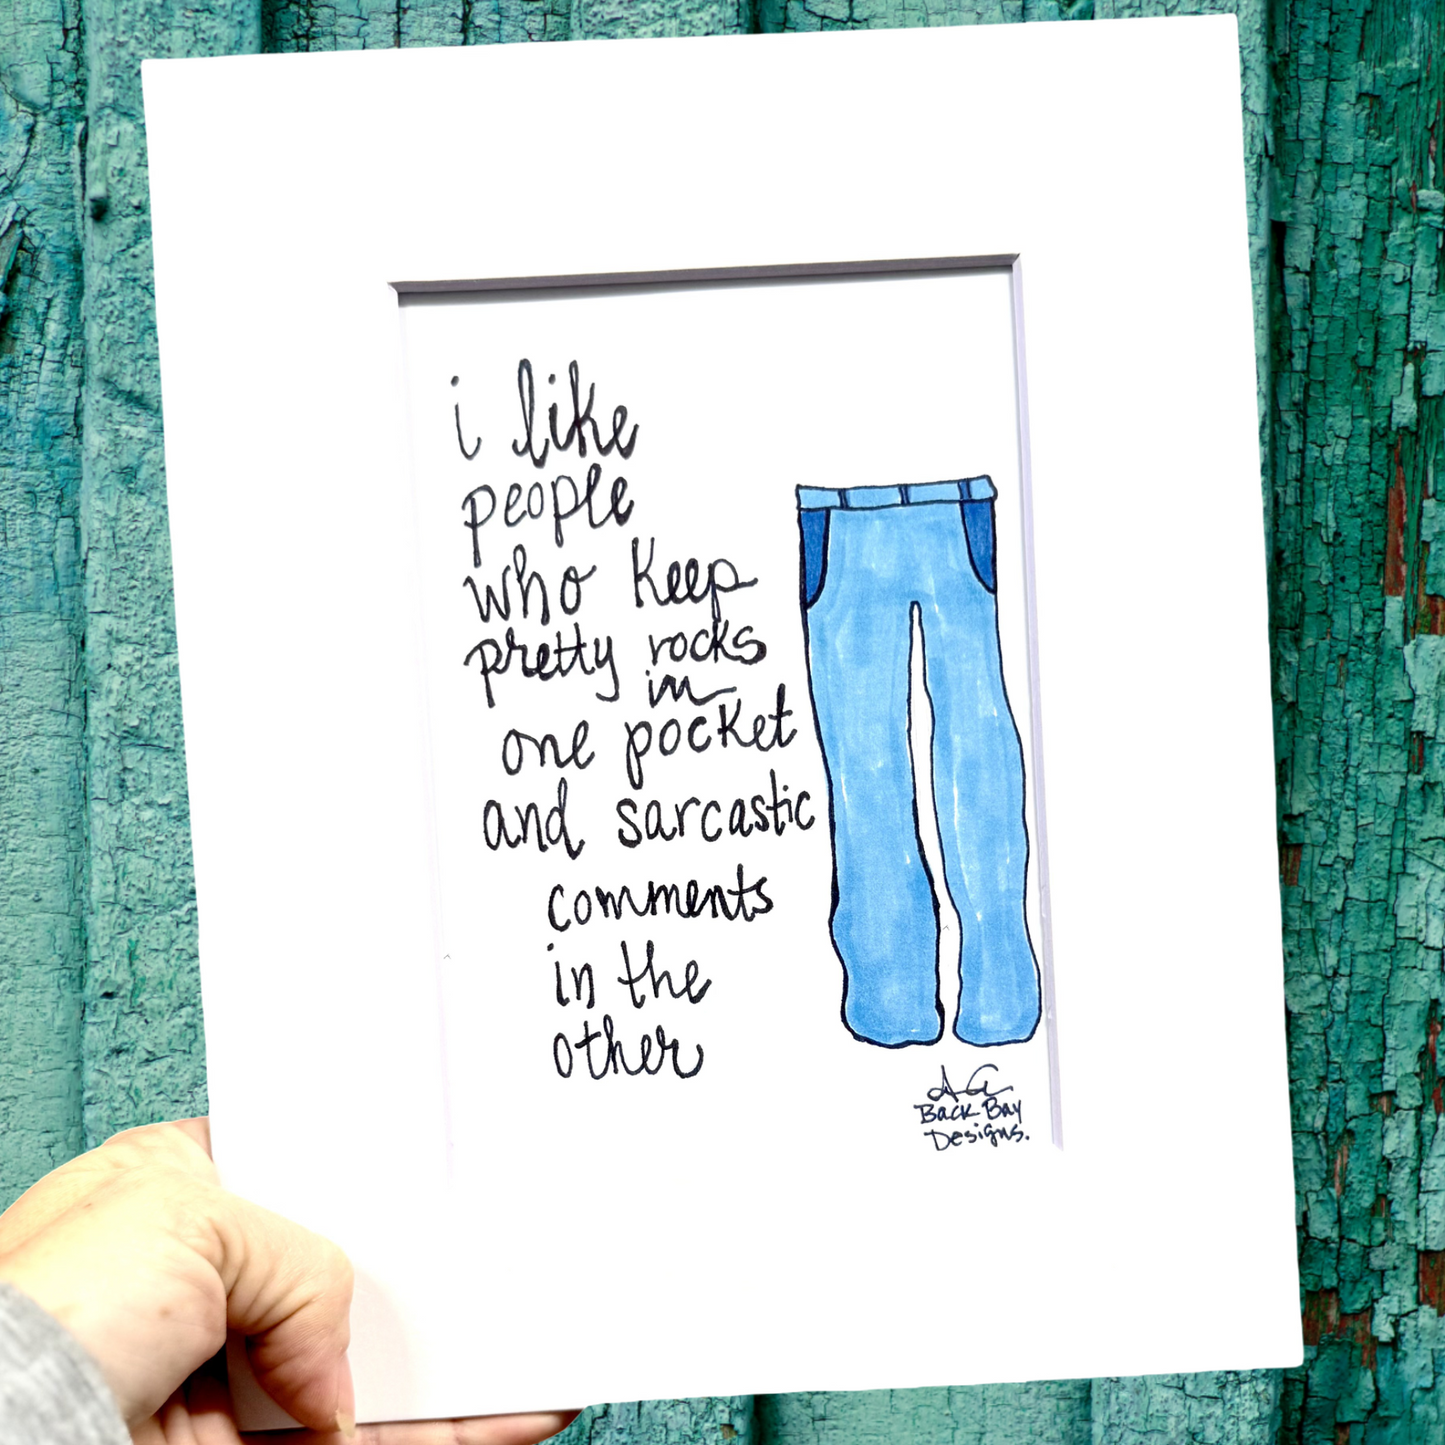 i like
people
who keep
pretty rocks
in
one pocket
and sarcastic
comments
in the
other
Back Bay
Designs.